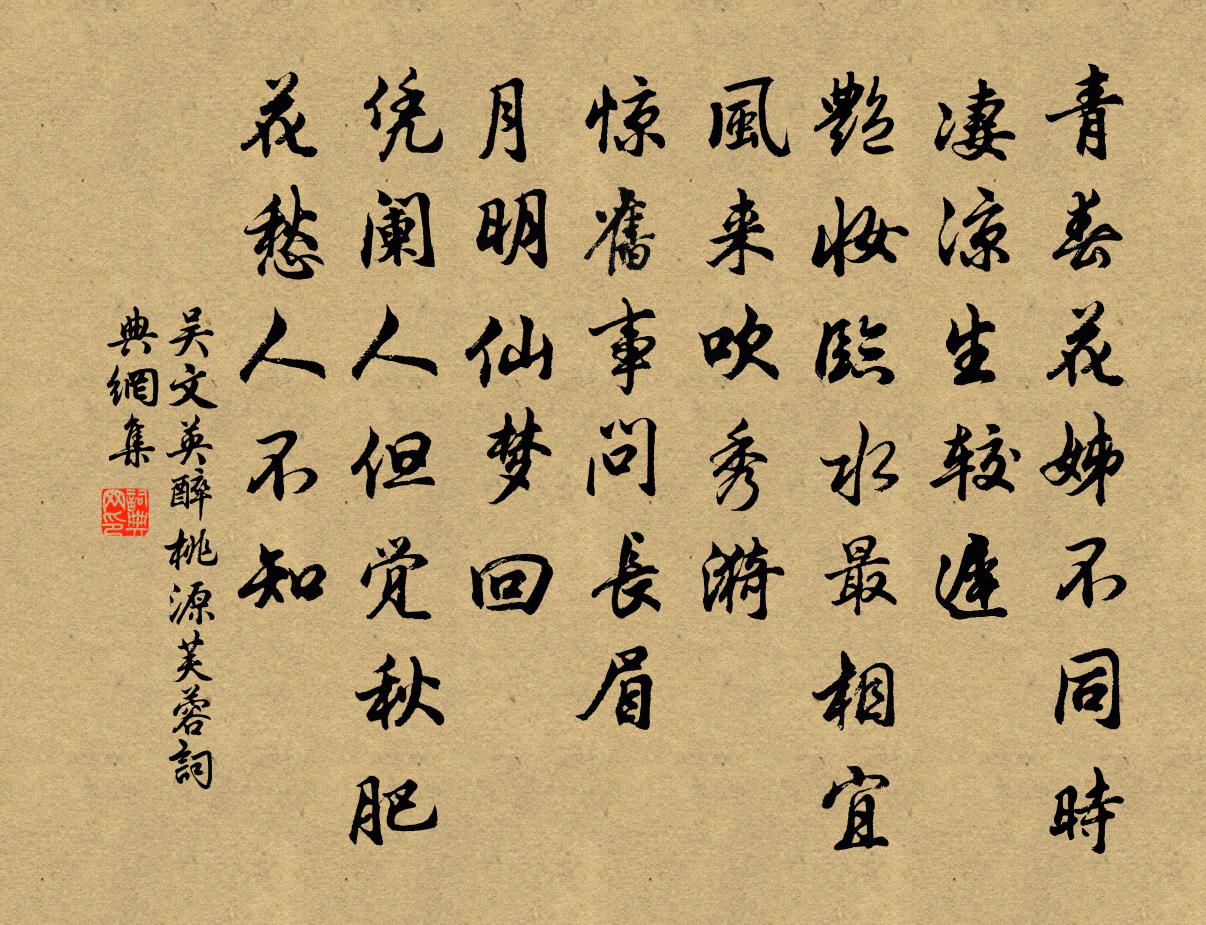 青春花姊不同時
凄凉生較遲
艶妆臨水最相宜
風来吹秀漪
惊舊事問長眉
月明仙梦回
凭阑人但觉秋肥
花愁人不知
吴文英醉桃源芙蓉詞
典網集
詞典网印